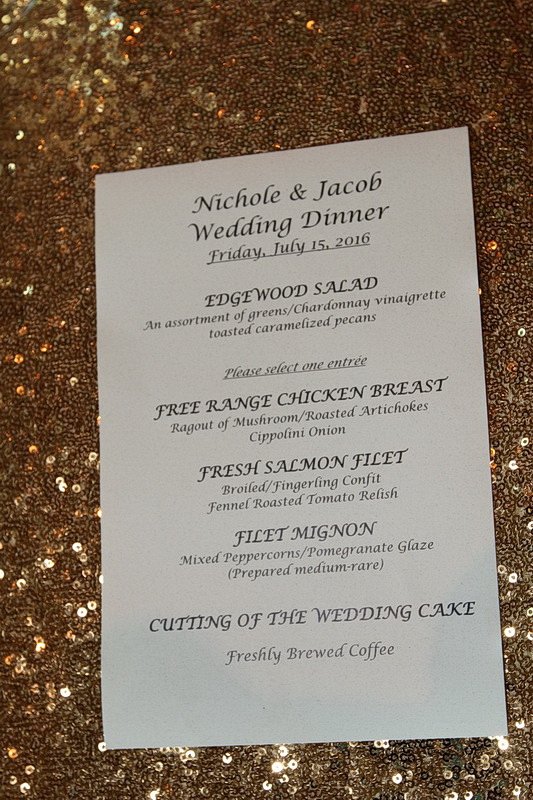 Nichole & Jacob
Wedding Dinner
Friday, July 15, 2016
EDGEWOOD SALAD
An assortment of greens/Chardonnay vinaigrette
toasted caramelized pecans
Please select one entrée
FREE RANGE CHICKEN BREAST
Ragout of Mushroom/Roasted Artichokes
Cippolini Onion
FRESH SALMON FILET
Broiled/Fingerling Confit
Fennel Roasted Tomato Relish
FILET MIGNON
Mixed Peppercorns/Pomegranate Glaze
(Prepared medium-rare)
CUTTING OF THE WEDDING CAKE
Freshly Brewed Coffee